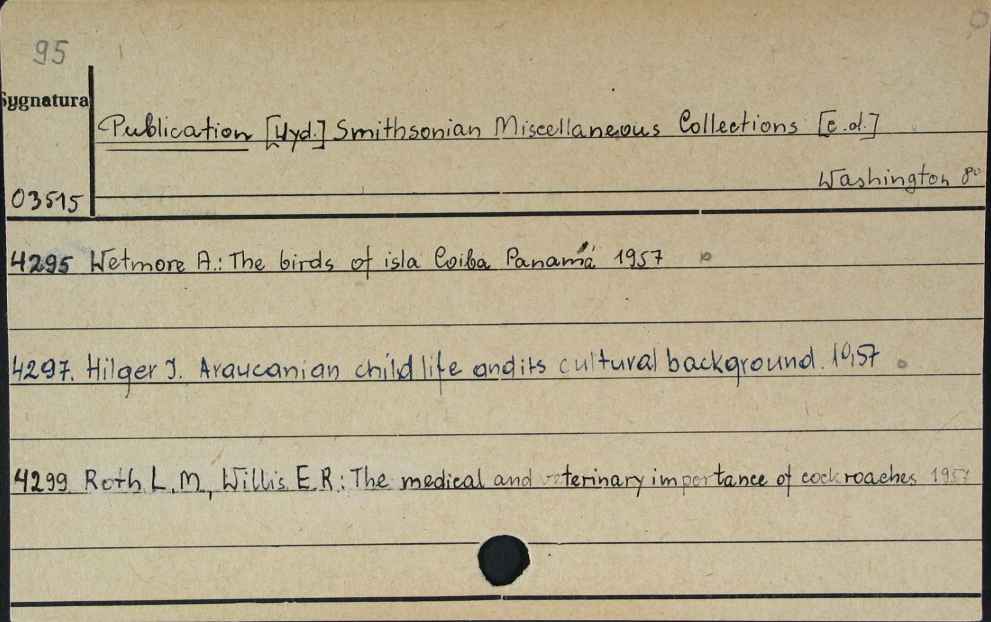 95
Sygnatura
Publication [Wyd.] Smithsonian Miscellaneous Collections [c.d.]
Washington 8°
03515
4295 Wetmore A.: The birds of isla Coiba Panamá 1957
4297. Hilger J. Araucanian child life and its cultural background. 1957
4299 Roth L.M., Willis E.R.: The medical and veterinary importance of cockroaches 1957